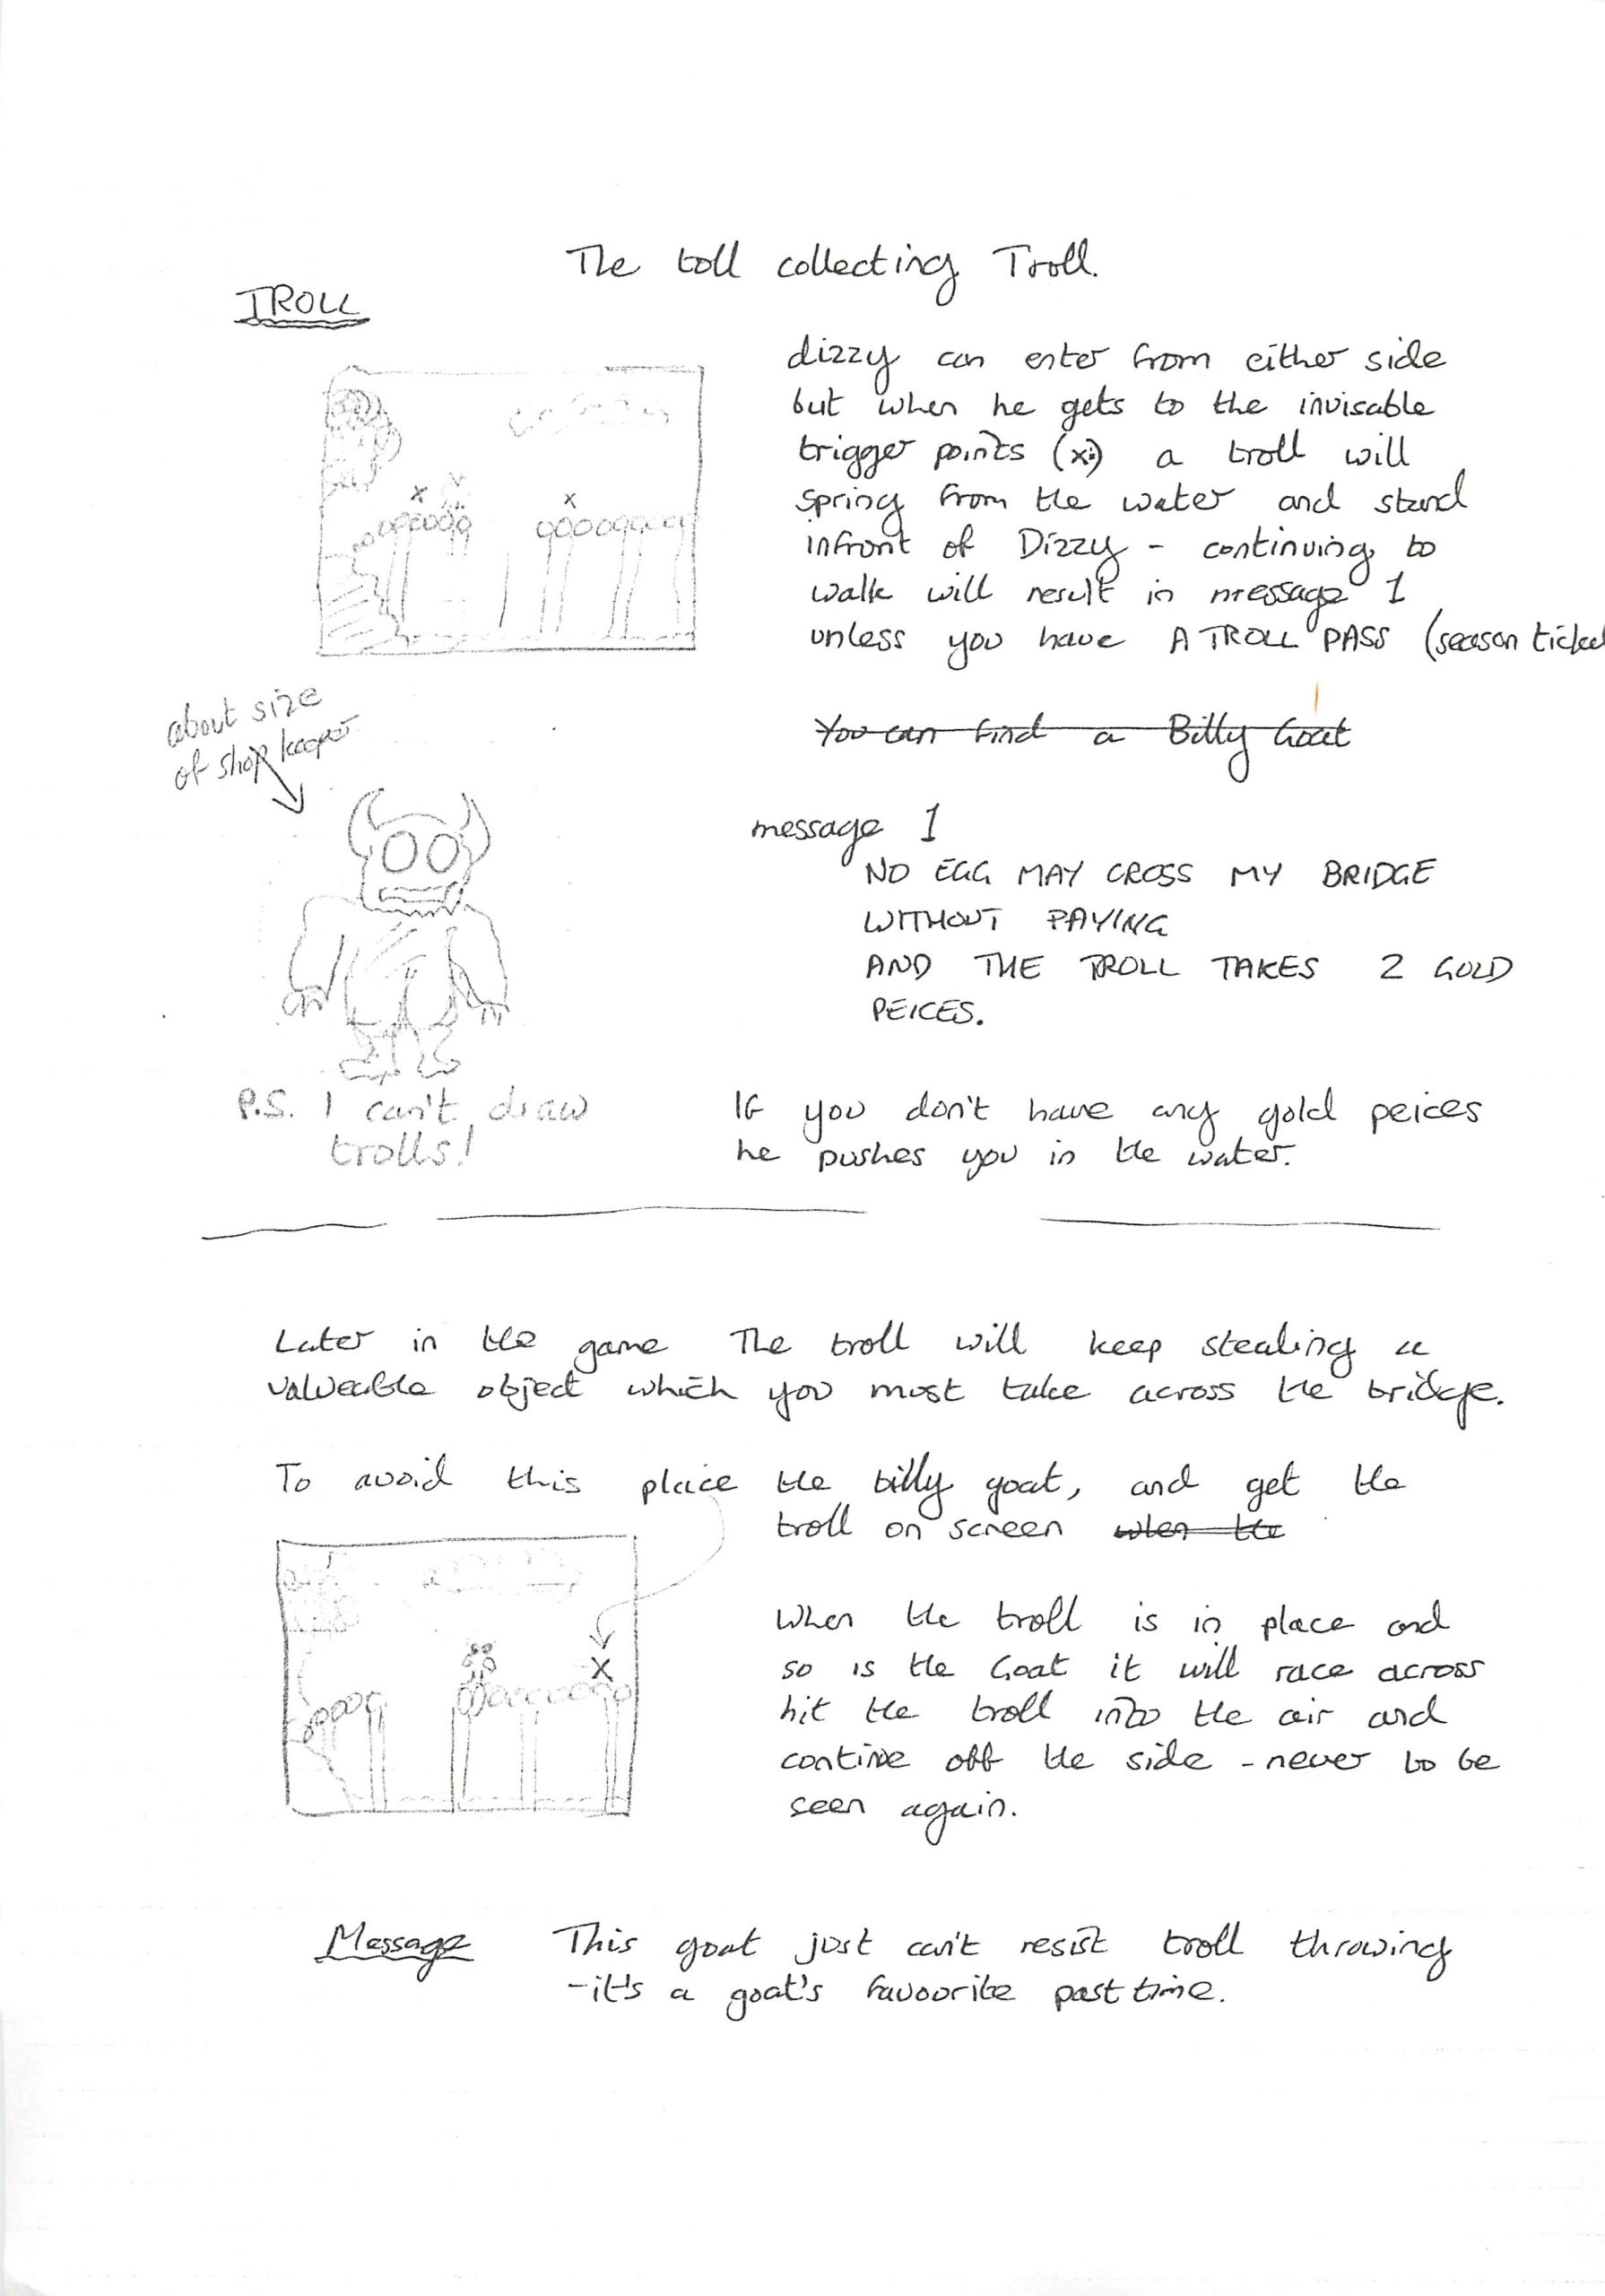 The toll collecting Troll.
TROLL
dizzy can enter from either side
but when he gets to the invisable
trigger points (x) a troll will
spring from the water and stand
infront of Dizzy - continuing to
walk will result in message 1
unless you have A TROLL PASS (season ticket
x
x
about size
of shop keeper
You can find a Billy Goat
message 1
NO EGG MAY CROSS MY BRIDGE
WITHOUT PAYING
AND THE TROLL TAKES 2 GOLD
PEICES.
P.S. I can't draw
trolls!
If you don't have any gold peices
he pushes you in the water.
Later in the game The troll will keep stealing a
valueable object which you must take across the bridge.
To avoid this place the billy goat, and get the
troll on screen when the
X
When the troll is in place and
so is the Goat it will race across
hit the troll into the air and
contine off the side - never to be
seen again.
Message This goat just can't resist troll throwing
- it's a goat's favourite past time.